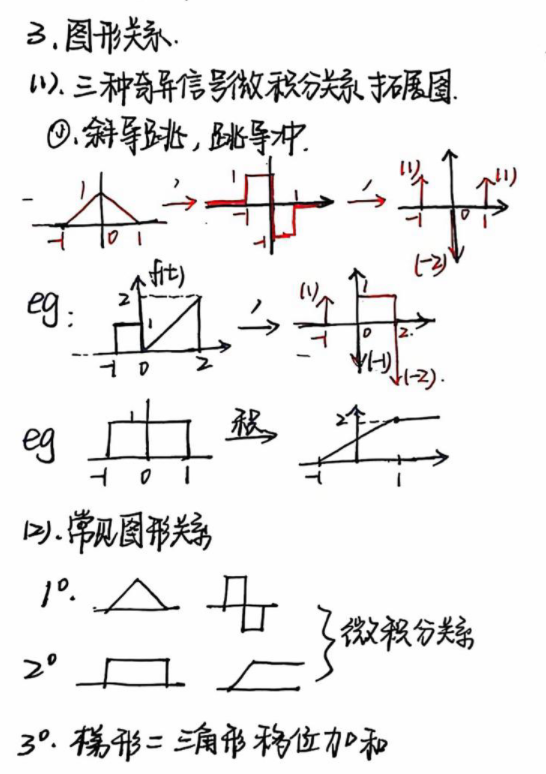 3. 图形关系.
(1). 三种奇异信号微积分关系拓展图.
①. 斜导跳, 跳导冲.
1 -1 0 1 ' 1 -1 1 -1 ' (1) (1) -1 0 1 (-2)
eg: 2 f(t) 1 -1 0 2 ' (1) 1 -1 0 2. (-1) (-2).
eg 1 -1 0 1 积 2 -1 1
(2). 常见图形关系
1°.
微积分关系
2°
3°. 梯形 = 三角形移位加和